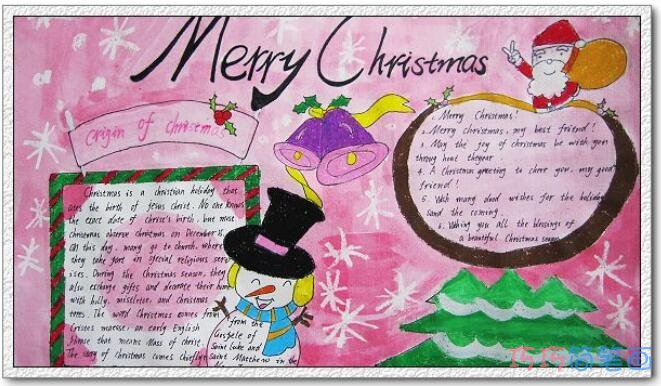 Merry Christmas
origin of christmas
Christmas is a christian holiday that
the birth of jesus christ. No one knows
the exact date of christ's birth, but most
Christmas on December
this day, many go to church, where
they take part in special religious
During the Christmas season, they
also exchange gifts and their
with holly, mistletoe, and christmas
trees. The word Christmas comes from
an early English
that means Mass of christ.
The of Christmas comes chiefly
from the
Saint Luke and
Saint Matthew in the
1. Merry Christmas!
2. Merry christmas, my best friend!
3. May the joy of christmas be with you
4. A Christmas greeting to cheer you, my good
friend!
5. Wish many good wishes for the holiday
and the coming
6. you all the blessings of
a beautiful Christmas season